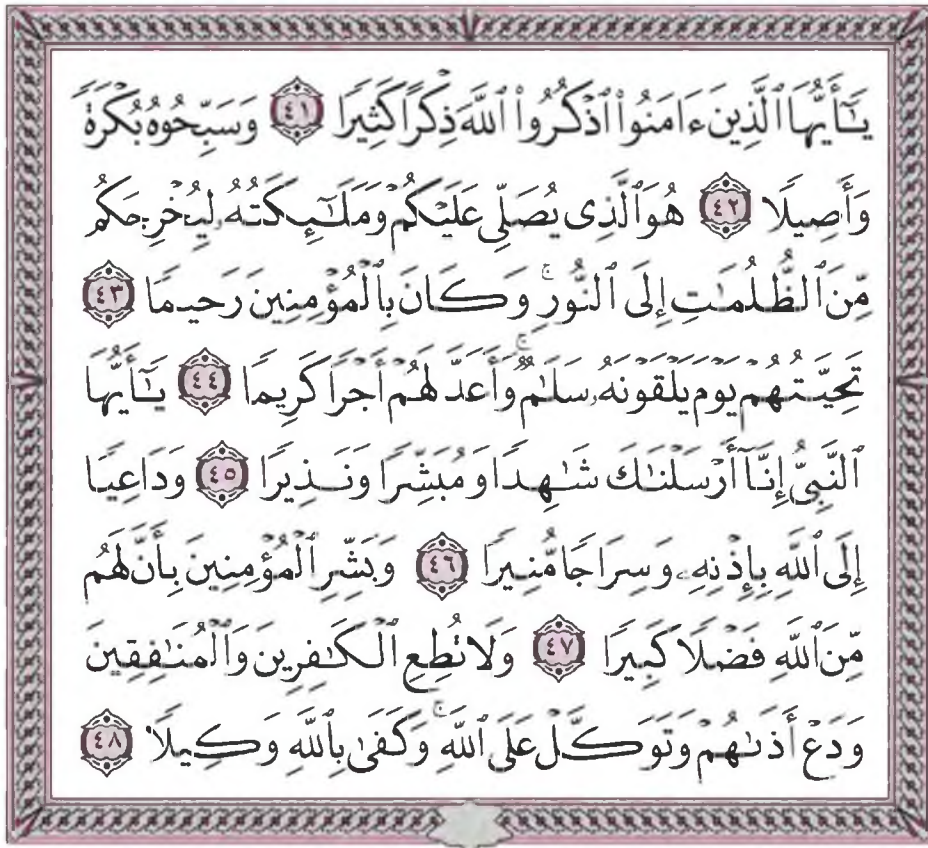 يَٰٓأَيُّهَا ٱلَّذِينَ ءَامَنُوا۟ ٱذْكُرُوا۟ ٱللَّهَ ذِكْرًا كَثِيرًا ٤١ وَسَبِّحُوهُ بُكْرَةً
وَأَصِيلًا ٤٢ هُوَ ٱلَّذِى يُصَلِّى عَلَيْكُمْ وَمَلَٰٓئِكَتُهُۥ لِيُخْرِجَكُم
مِّنَ ٱلظُّلُمَٰتِ إِلَى ٱلنُّورِ ۚ وَكَانَ بِٱلْمُؤْمِنِينَ رَحِيمًا ٤٣
تَحِيَّتُهُمْ يَوْمَ يَلْقَوْنَهُۥ سَلَٰمٌ ۚ وَأَعَدَّ لَهُمْ أَجْرًا كَرِيمًا ٤٤ يَٰٓأَيُّهَا
ٱلنَّبِىُّ إِنَّآ أَرْسَلْنَٰكَ شَٰهِدًا وَمُبَشِّرًا وَنَذِيرًا ٤٥ وَدَاعِيًا
إِلَى ٱللَّهِ بِإِذْنِهِۦ وَسِرَاجًا مُّنِيرًا ٤٦ وَبَشِّرِ ٱلْمُؤْمِنِينَ بِأَنَّ لَهُم
مِّنَ ٱللَّهِ فَضْلًا كَبِيرًا ٤٧ وَلَا تُطِعِ ٱلْكَٰفِرِينَ وَٱلْمُنَٰفِقِينَ
وَدَعْ أَذَىٰهُمْ وَتَوَكَّلْ عَلَى ٱللَّهِ ۚ وَكَفَىٰ بِٱللَّهِ وَكِيلًا ٤٨